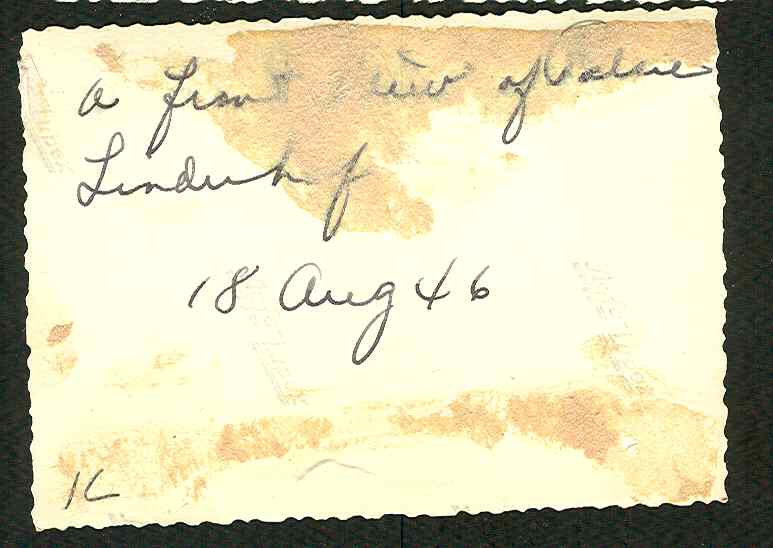 a front view of Palace
Linderhof
18 Aug 46